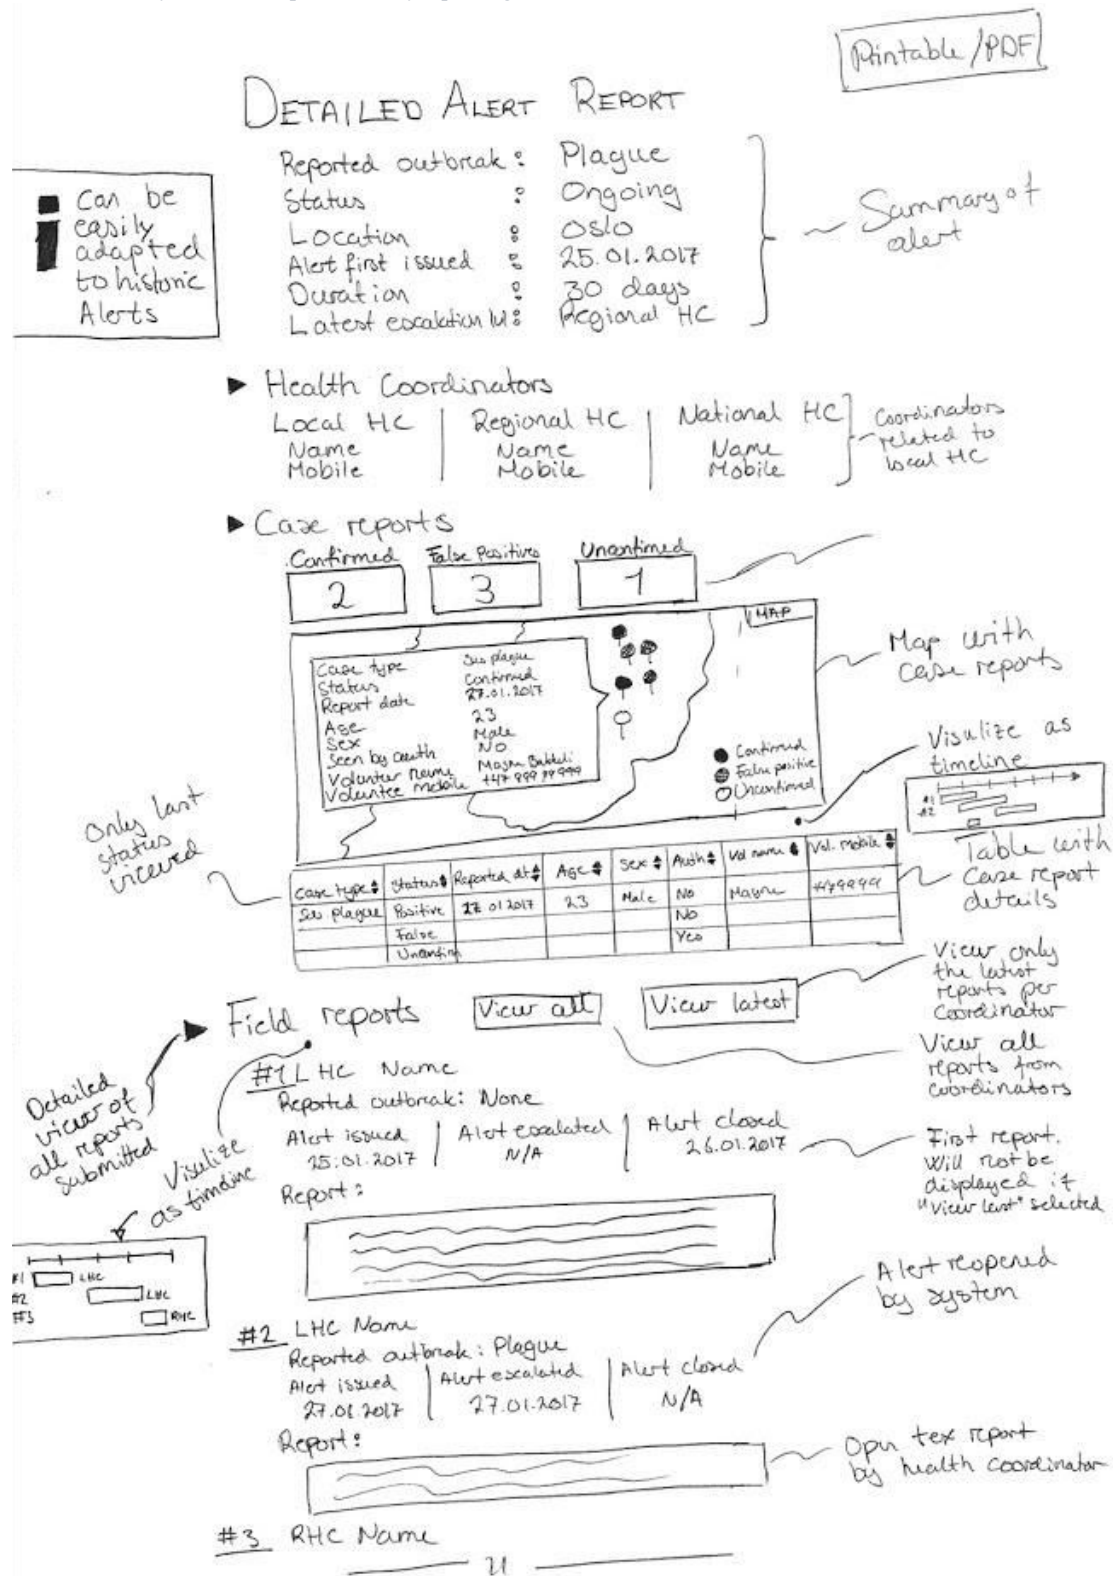 Printable/PDF
DETAILED ALERT REPORT
Reported outbreak : Plague
Status : Ongoing
Location : Oslo
Alert first issued : 25.01.2017
Duration : 30 days
Latest escalation lvl : Regional HC
Summary of
alert
Can be
easily
adapted
to historic
Alerts
Health Coordinators
Local HC | Regional HC | National HC
Name Name Name
Mobile Mobile Mobile
Coordinators
related to
local HC
Case reports
Confirmed False Positives Unconfirmed
2 3 1
MAP
Case type Sus plague
Status Confirmed
Report date 27.01.2017
Age 23
Sex Male
Seen by auth NO
Volunteer name Magne
Voluntee mobile +47 999 99 999
Confirmed
False positive
Unconfirmed
Map with
Case reports
Visulize as
timeline
#1
#2
Only last
status
viewed
Case type Status Reported dt Age Sex Auth Vol name Vol. mobile
Sus plague Positive 27 01 2017 23 Male No Magne +479999
False No
Unconfirm Yes
Table with
Case report
details
Field reports View all View latest
View only
the latest
reports per
Coordinator
View all
reports from
coordinators
Detailed
view of
all reports
submitted
Visulize
as timeline
#1 LHC
#2 LHC
#3 RHC
#1 LHC Name
Reported outbreak: None
Alert issued | Alert escalated | Alert closed
25.01.2017 N/A 26.01.2017
Report :
First report.
Will not be
displayed if
"View last" selected
#2 LHC Name
Reported outbreak : Plague
Alert issued | Alert escalated | Alert closed
27.01.2017 27.01.2017 N/A
Report :
Alert reopened
by system
Open tex report
by health coordinator
#3 RHC Name